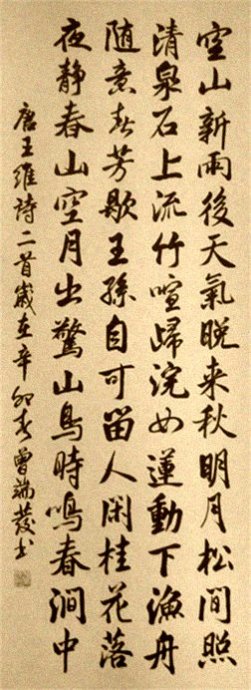 空山新雨後天氣晚来秋明月松間照
清泉石上流竹喧歸浣女蓮動下漁舟
随意春芳歇王孫自可留人閑桂花落
夜静春山空月出驚山鳥時鳴春澗中
唐王維詩二首歲在辛卯春曾端發书